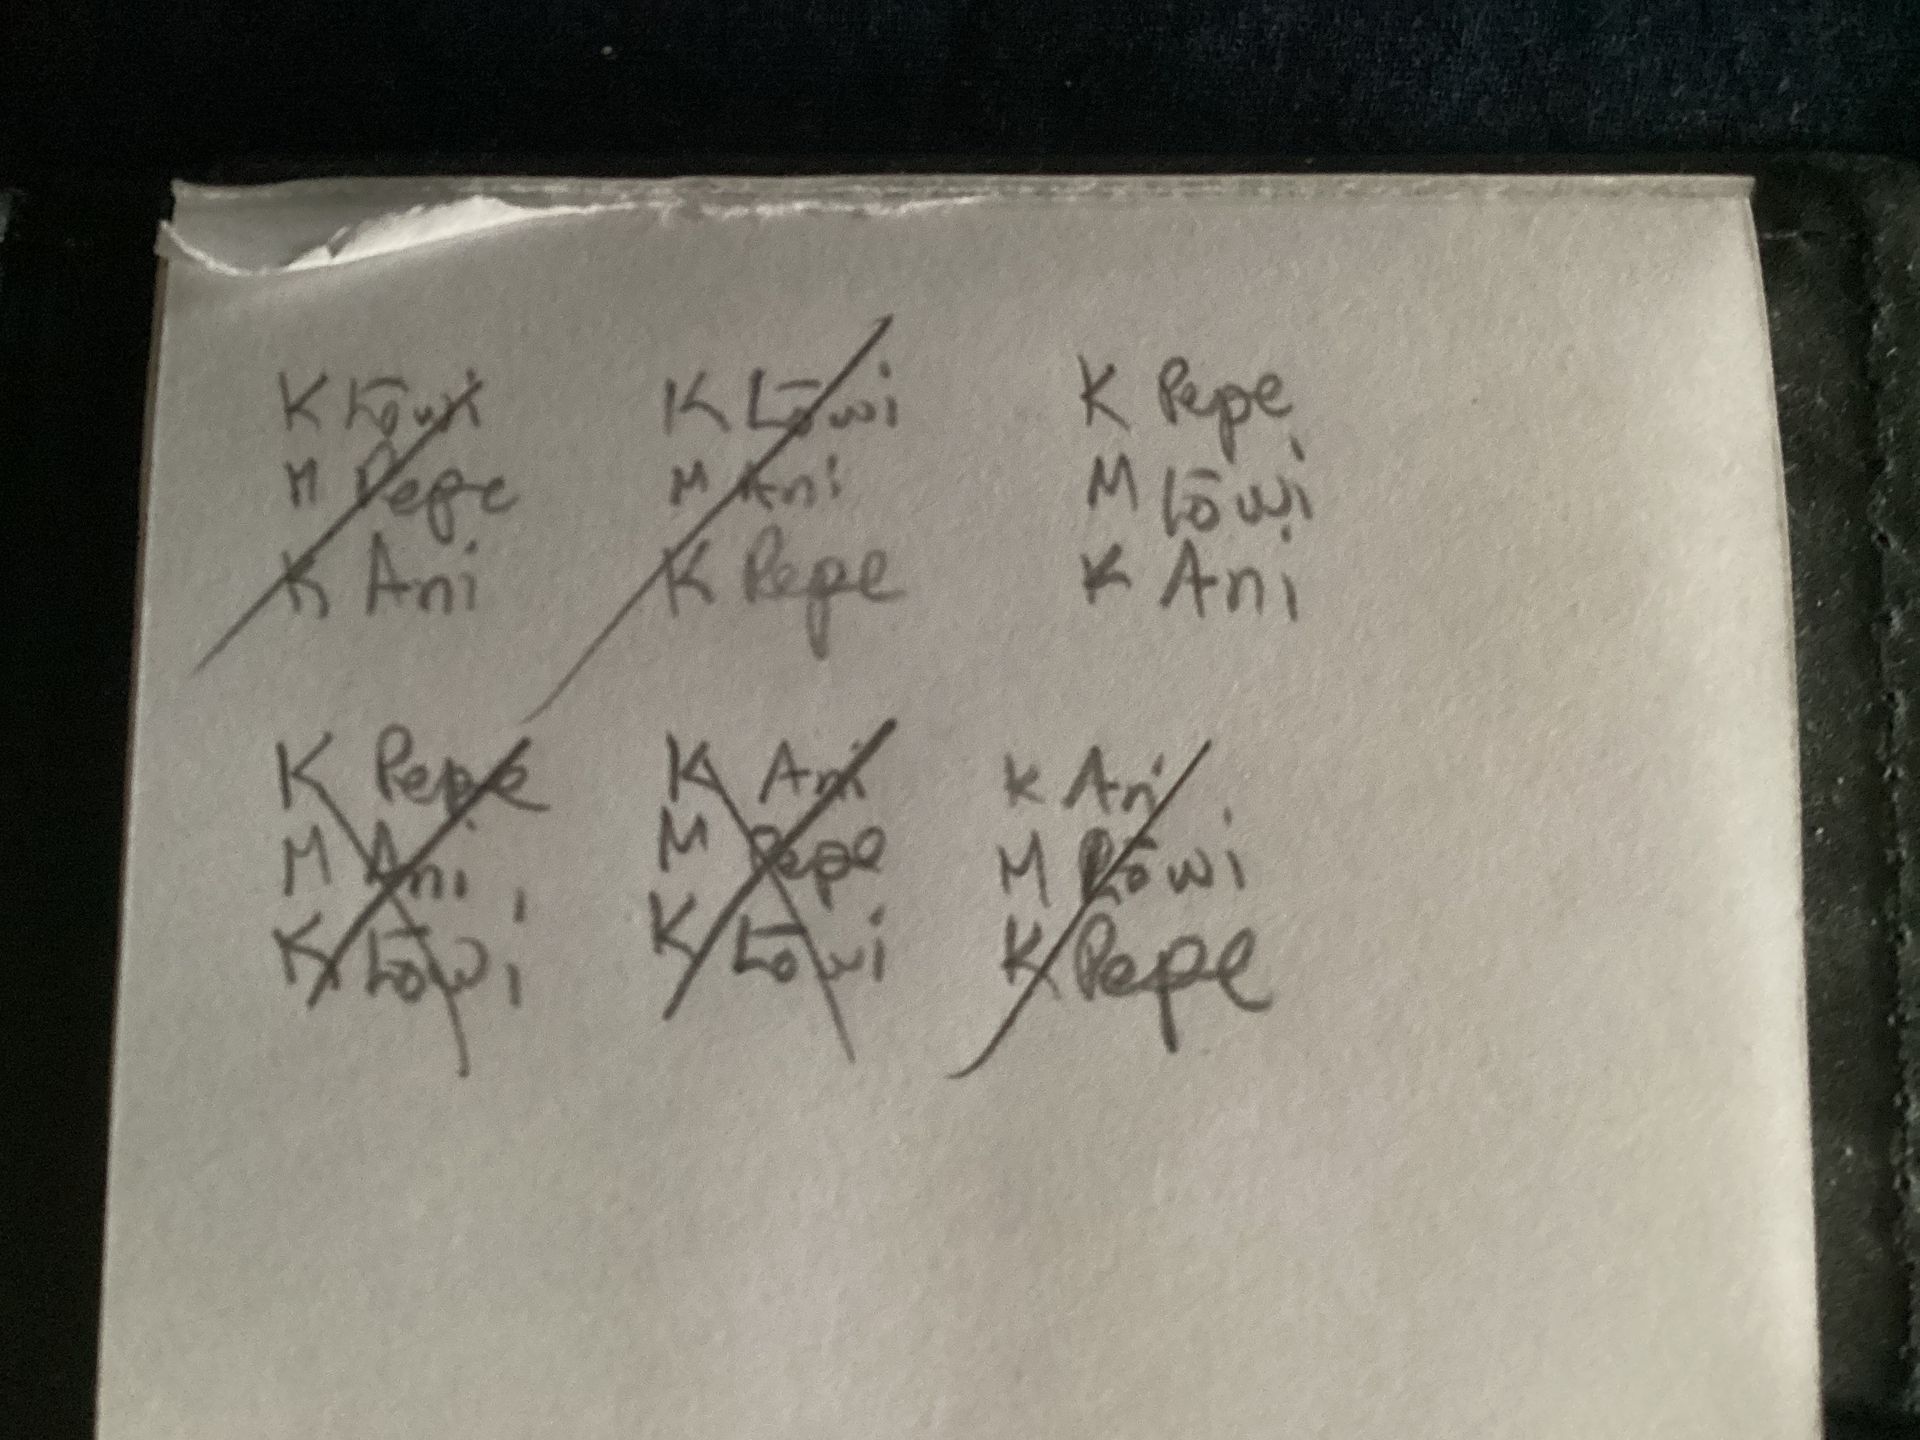 K Lōwi
M Pepe
K Ani
K Lōwi
M Ani
K Pepe
K Pepe
M Lōwi
K Ani
K Pepe
M Ani
K Lōwi
K Ani
M Pepe
K Lōwi
K Ani
M Lōwi
K Pepe